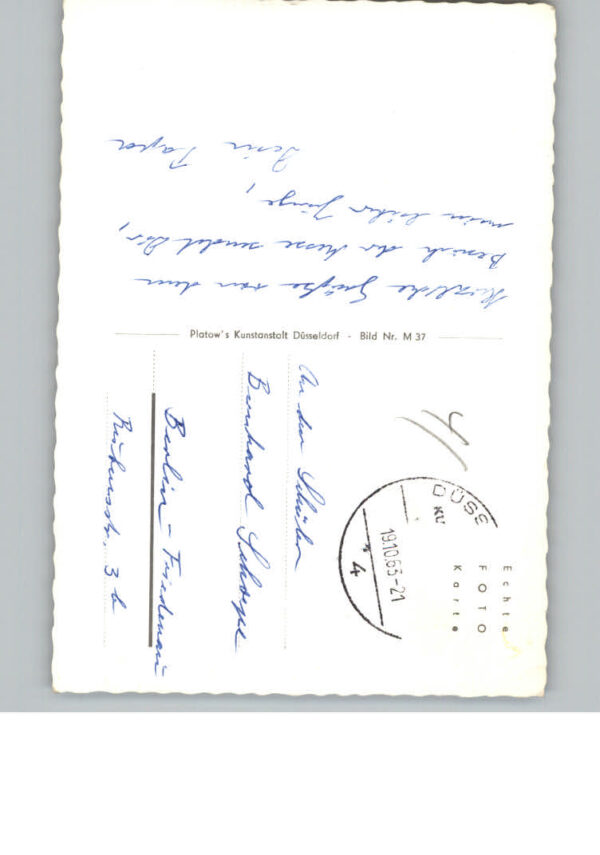 Herzliche Grüße von dem
Besuch der Messe sendet Dir,
mein lieber Junge,
Dein Papa
Platow's Kunstanstalt Düsseldorf - Bild Nr. M 37
Echte
FOTO
Karte
DÜSS
KU
19.10.63-21
* 4
An den Schüler
Bernhard
Berlin - Friedenau
Rubensstr. 3 b